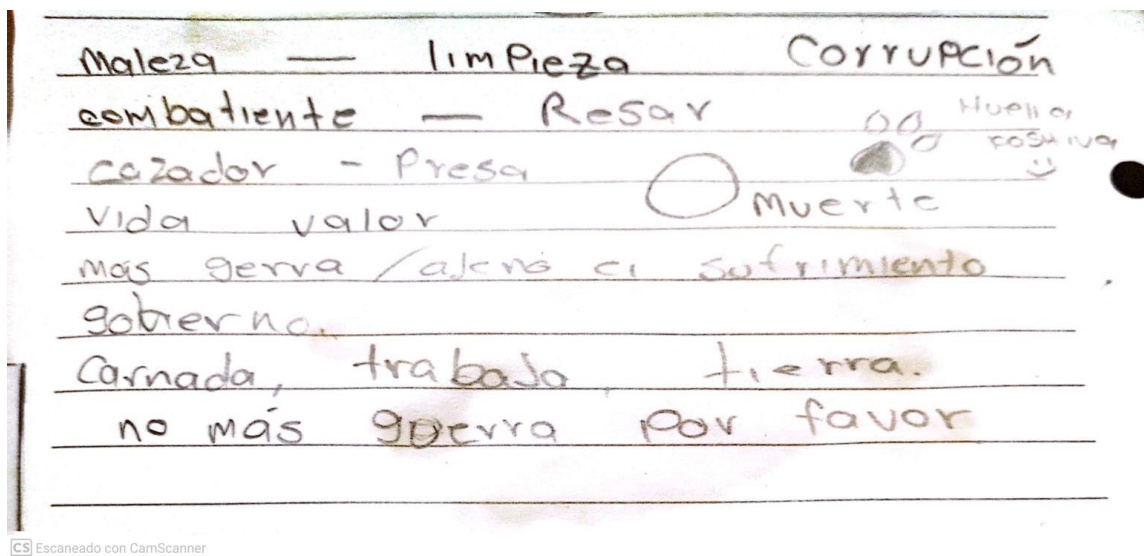 Maleza — limpieza Corrupción
combatiente — Resar
Huella
positiva
cazador - Presa
Muerte
vida valor
mas gerra / ajeno al sufrimiento
gobierno.
Carnada, trabajo, tierra.
no más guerra por favor
CS Escaneado con CamScanner